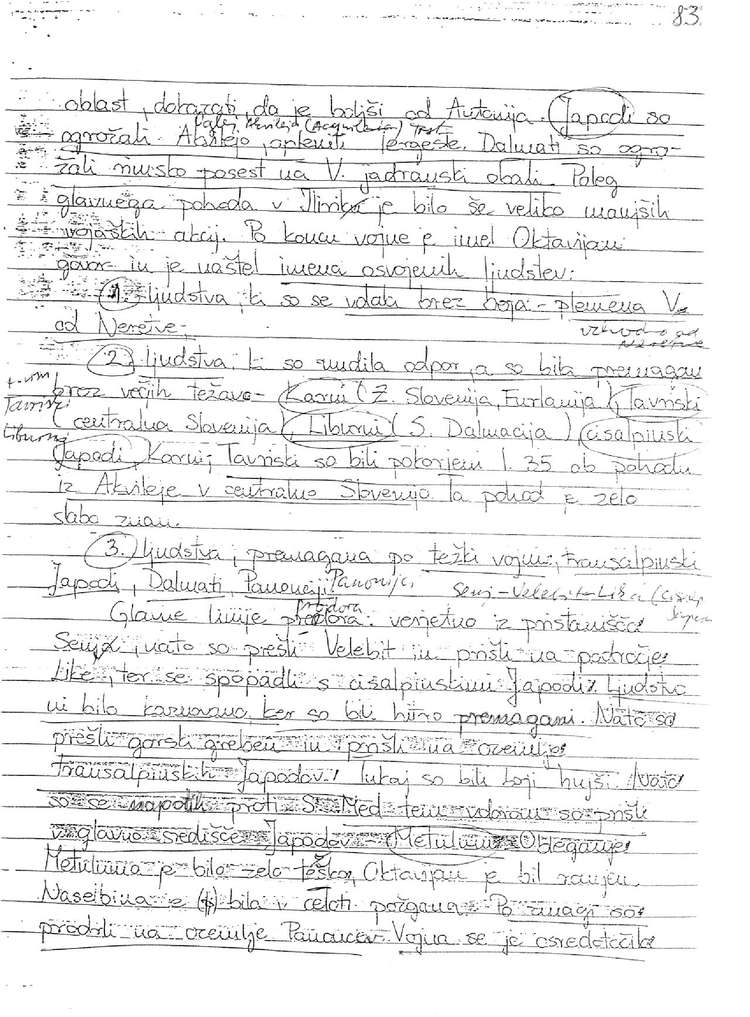 83
oblast, dokazati, da je boljši od Antonija. Japodi so
ogrožali Akvilejo, opleniti Tergeste. Dalmati so ogro-
žali rimsko posest na V. jadranski obali. Poleg
glavnega pohoda v Ilirik je bilo še veliko manjših
vojaških akcij. Po koncu vojne je imel Oktavijan
govor in je naštel imena osvojenih ljudstev:
1. ljudstva, ki so se vdala brez boja - plemena V.
od Neretve.
vzhodno od Neretve
2. ljudstva, ki so nudila odpor, a so bila premagana
brez večjih težav - Karni (Z. Slovenija, Furlanija), Tavriski
(centralna Slovenija), Liburni (S. Dalmacija) cisalpinski
Japodi. Karni, Tavriski so bili pokorjeni l. 35 ob pohodu
Karni
Tavriski
Liburni
iz Akvileje v centralno Slovenijo. Ta pohod je zelo
slabo znan.
3. ljudstva, premagana po težki vojni, transalpinski
Japodi, Dalmati, Panonci. Panonija Senj - Velebit - Lika
Glavne linije prodora: verjetno iz pristanišča
Senja, nato so prešli Velebit in prišli na področje
Like, ter se spopadli s cisalpinskimi Japodi. Ljudstvo
ni bilo kaznovano, ker so bili hitro premagani. Nato so
prešli gorski greben in prišli na ozemlje
transalpinskih Japodov. Tukaj so bili boji hujši. Nato
so se napotili proti S. Med tem vdorom so prišli
v glavno središče Japodov - Metulum. Obleganje
Metuluma je bilo zelo težko, Oktavijan je bil ranjen.
Naselbina je bila v celoti požgana. Po zmagi so
prodrli na ozemlje Panoncev. Vojna se je osredotočila